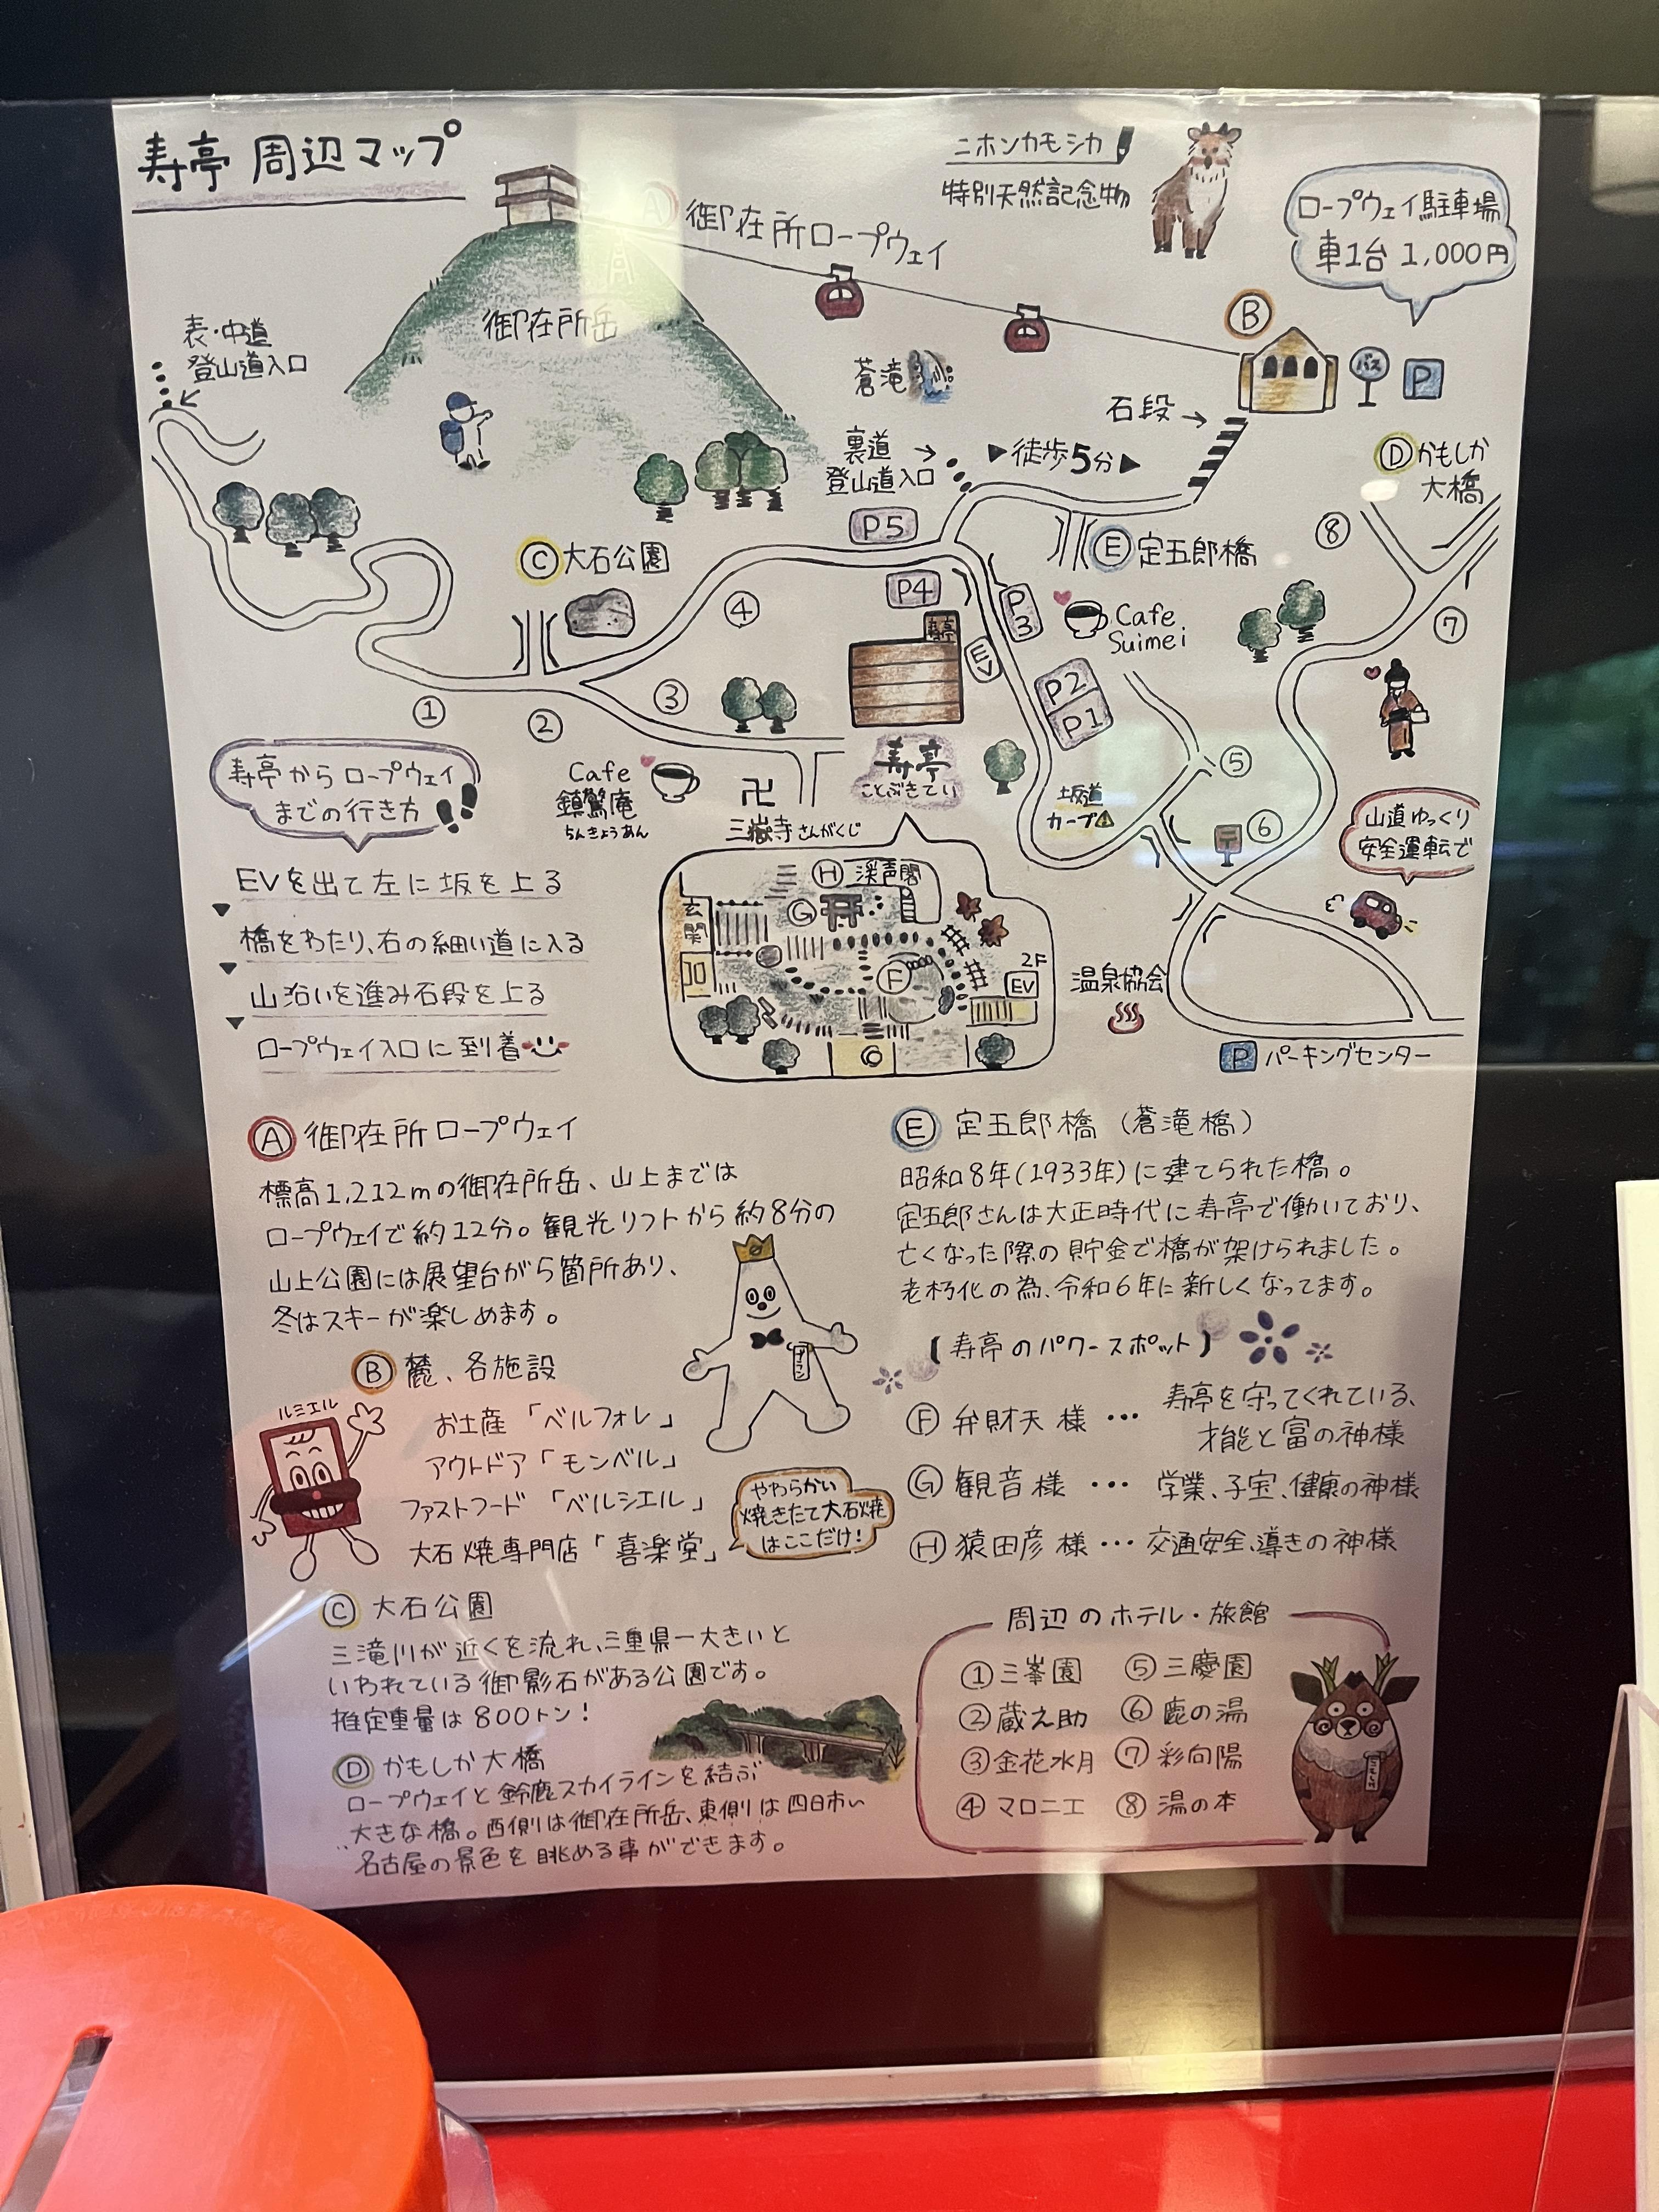 寿亭 周辺マップ
ニホンカモシカ
特別天然記念物
ロープウェイ駐車場
車1台 1,000円
A 御在所ロープウェイ
御在所岳
表・中道
登山道入口
蒼滝
B
バス
P
石段
裏道
登山道入口
▶徒歩5分▶
D かもしか
大橋
P5
E 定五郎橋
C 大石公園
P4
P3
Cafe
Suimei
寿亭
EV
P2
P1
①
②
③
④
⑤
⑥
⑦
⑧
寿亭
ことぶきてい
坂道
カーブ
山道ゆっくり
安全運転で
Cafe
鎮驚庵
ちんきょうあん
卍
三嶽寺 さんがくじ
寿亭からロープウェイ
までの行き方
EVを出て左に坂を上る
橋をわたり、右の細い道に入る
山沿いを進み石段を上る
ロープウェイ入口に到着
H 渓声閣
G
玄関
F
2F
EV
温泉協会
P パーキングセンター
A 御在所ロープウェイ
標高1,212mの御在所岳、山上までは
ロープウェイで約12分。観光リフトから約8分の
山上公園には展望台が5箇所あり、
冬はスキーが楽しめます。
B 麓、各施設
ルミエル
お土産「ベルフォレ」
アウトドア「モンベル」
ファストフード「ベルシエル」
大石焼専門店「喜楽堂」
やわらかい
焼きたて大石焼
はここだけ!
C 大石公園
三滝川が近くを流れ、三重県一大きいと
いわれている御影石がある公園です。
推定重量は800トン!
D かもしか大橋
ロープウェイと鈴鹿スカイラインを結ぶ
大きな橋。西側は御在所岳、東側は四日市い
名古屋の景色を眺める事ができます。
E 定五郎橋(蒼滝橋)
昭和8年(1933年)に建てられた橋。
定五郎さんは大正時代に寿亭で働いており、
亡くなった際の貯金で橋が架けられました。
老朽化の為、令和6年に新しくなってます。
【寿亭のパワースポット】
F 弁財天様 ••• 寿亭を守ってくれている、
才能と富の神様
G 観音様 ••• 学業、子宝、健康の神様
H 猿田彦様 ••• 交通安全、導きの神様
周辺のホテル・旅館
①三峯園 ⑤三慶園
②蔵之助 ⑥鹿の湯
③金花水月 ⑦彩向陽
④マロニエ ⑧湯の本